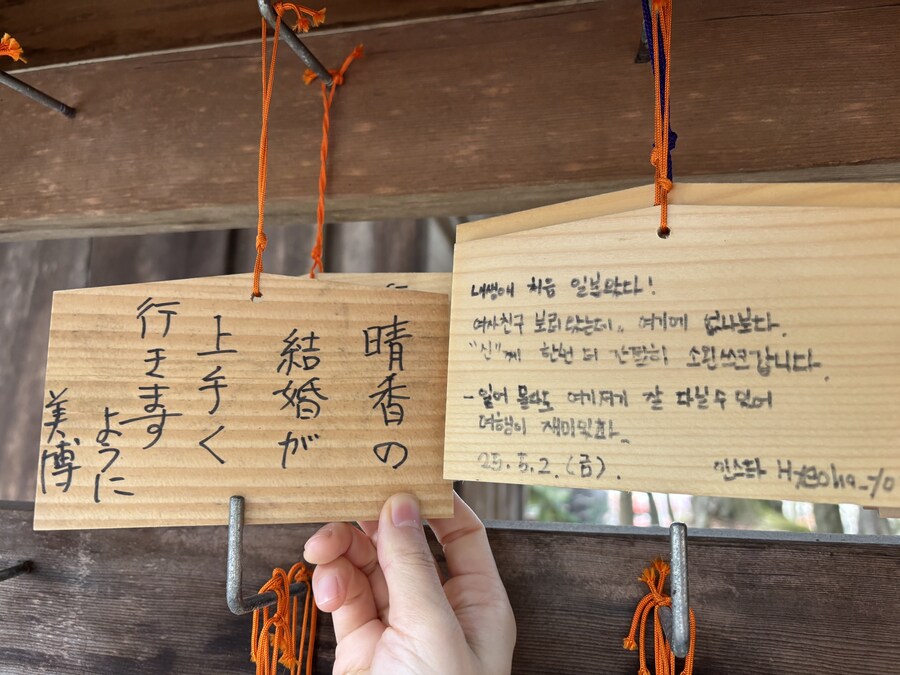 晴香の
結婚が
上手く
行きます
ように
美博
내생애 처음 일본왔다!
여자친구 보러왔는데.. 여기에 없나보다.
"신"께 한번 더 간절히 소원쓰고갑니다.
- 일어 몰라도 여기저기 잘 다닐수 있어
여행이 재미있다.
25. 5. 2. (금).
인스타